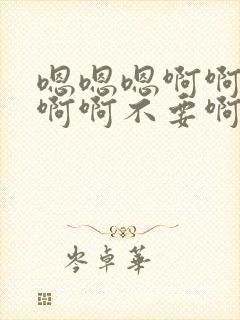 嗯嗯嗯啊啊
啊啊不要啊
岑卓華